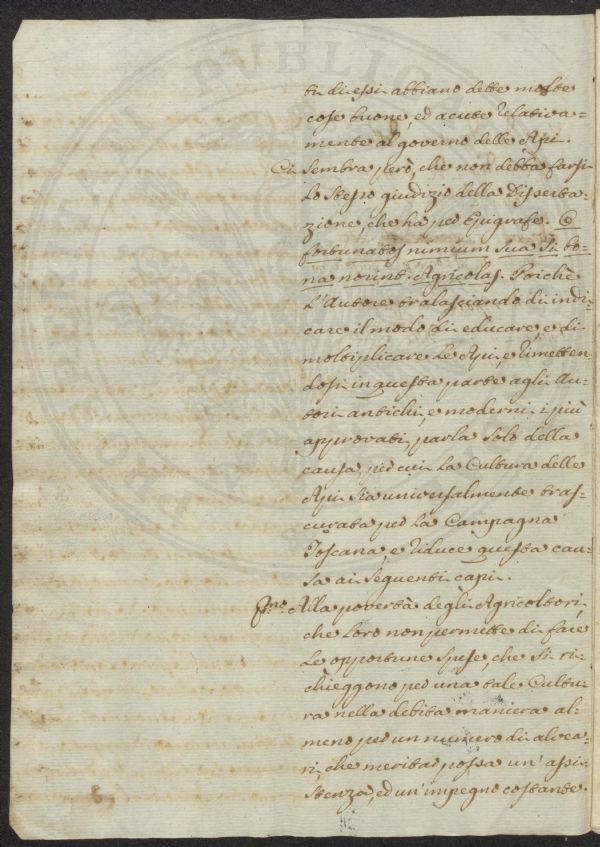 ti di essi abbiano dette molte
cose buone, ed acute relativa=
mente al governo delle Api.
Ci sembra però, che non debba farsi
lo stesso giudizio della Disserta-
zione, che ha per Epigrafe. O
fortunatos nimium sua si bo-
na norint Agricolas. Poichè
l'Autore tralasciando di indi-
care il modo di educare, e di
moltiplicare le Api, e rimetten-
dosi in questa parte agli Au-
tori antichi, e moderni i più
approvati, parla solo della
causa, per cui la Cultura delle
Api sia universalmente tras-
curata per la Campagna
Toscana, e riduce questa cau-
sa ai seguenti capi.
Pmo. Alla povertà degli Agricoltori,
che loro non permette di fare
le opportune spese, che si ri-
chieggono per una tale Cultu-
ra nella debita maniera al-
meno per un numero di alvea-
ri, che meritar possa un' assi-
stenza, ed un' impegno costante.